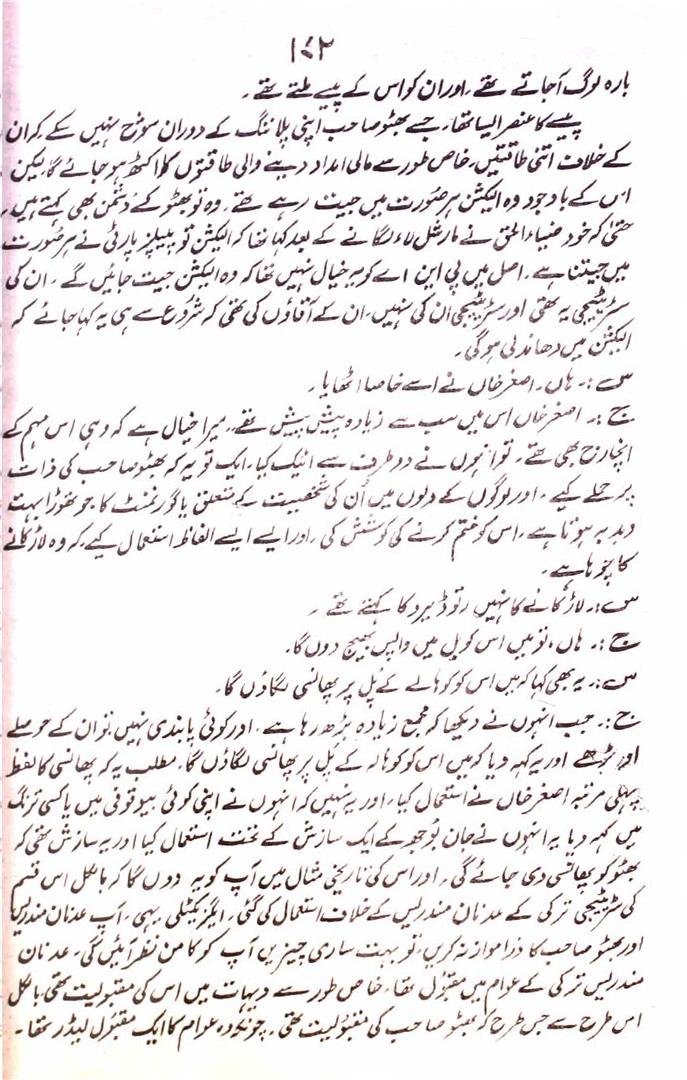 ۱۷۲
بارہ لوگ آجاتے تھے۔ اور ان کو اس کے پیسے ملتے تھے۔
پیسے کا عنصر ایسا تھا، جسے بھٹو صاحب اپنی پلاننگ کے دوران سوچ نہیں سکے کہ ان
کے خلاف اتنی طاقتیں، خاص طور سے مالی امداد دینے والی طاقتوں کا اکٹھ ہو جائے گا۔ لیکن
اس کے باوجود وہ الیکشن ہر صورت میں جیت رہے تھے۔ وہ تو بھٹو کے دشمن بھی کہتے ہیں،
حتیٰ کہ خود ضیاء الحق نے مارشل لاء لگانے کے بعد کہا تھا کہ الیکشن تو پیپلز پارٹی نے ہر صورت
میں جیتنا ہے۔ اصل میں پی این اے کو یہ خیال نہیں تھا کہ وہ الیکشن جیت جائیں گے۔ ان کی
سٹریٹیجی یہ تھی اور سٹریٹیجی ان کی نہیں، ان کے آقاؤں کی تھی کہ شروع سے ہی یہ کہا جائے کہ
الیکشن میں دھاندلی ہوگی۔
س:۔ ہاں۔ اصغر خاں نے اسے خاصا اٹھایا۔
ج:۔ اصغر خاں اس میں سب سے زیادہ پیش پیش تھے۔ میرا خیال ہے کہ وہی اس مہم کے
انچارج بھی تھے۔ تو انہوں نے دو طرف سے اٹیک کیا، ایک تو یہ کہ بھٹو صاحب کی ذات
پر حملے کیے۔ اور لوگوں کے دلوں میں اُن کی شخصیت کے متعلق یا گورنمنٹ کا جو تھوڑا بہت
دبدبہ ہوتا ہے۔ اس کو ختم کرنے کی کوشش کی، اور ایسے ایسے الفاظ استعمال کیے، کہ وہ لاڑکانے
کا چوہا ہے۔
س:۔ لاڑکانے کا نہیں، نوڈیرو کا کہتے تھے۔
ج:۔ ہاں، تو میں اس کو بل میں واپس بھیج دوں گا۔
س:۔ یہ بھی کہا کہ میں اس کو کوہالے کے پُل پر پھانسی لگاؤں گا۔
ج:۔ جب انہوں نے دیکھا کہ مجمع زیادہ بڑھ رہا ہے، اور کوئی پابندی نہیں، تو ان کے حوصلے
اور بڑھے اور یہ کہہ دیا کہ میں اس کو کوہالہ کے پل پر پھانسی لگاؤں گا، مطلب یہ کہ پھانسی کا لفظ
پہلی مرتبہ اصغر خاں نے استعمال کیا۔ اور یہ نہیں کہ انہوں نے اپنی کوئی بیوقوفی میں یا کسی ترنگ
میں کہہ دیا یہ انہوں نے جان بُوجھ کے ایک سازش کے تحت استعمال کیا اور یہ سازش تھی کہ
بھٹو کو پھانسی دی جائے گی۔ اور اس کی تاریخی مثال میں آپ کو یہ دوں گا کہ بالکل اس قسم
کی سٹریٹیجی ترکی کے عدنان مندریس کے خلاف استعمال کی گئی۔ ایگزیکٹلی یہی۔ آپ عدنان مندریس
اور بھٹو صاحب کا ذرا موازنہ کریں، تو بہت ساری چیزیں آپ کو کامن نظر آئیں گی۔ عدنان
مندریس ترکی کے عوام میں مقبول تھا، خاص طور سے دیہات میں اس کی مقبولیت تھی، بالکل
اس طرح سے جس طرح کہ بھٹو صاحب کی مقبولیت تھی۔ چونکہ وہ عوام کا ایک مقبول لیڈر تھا۔